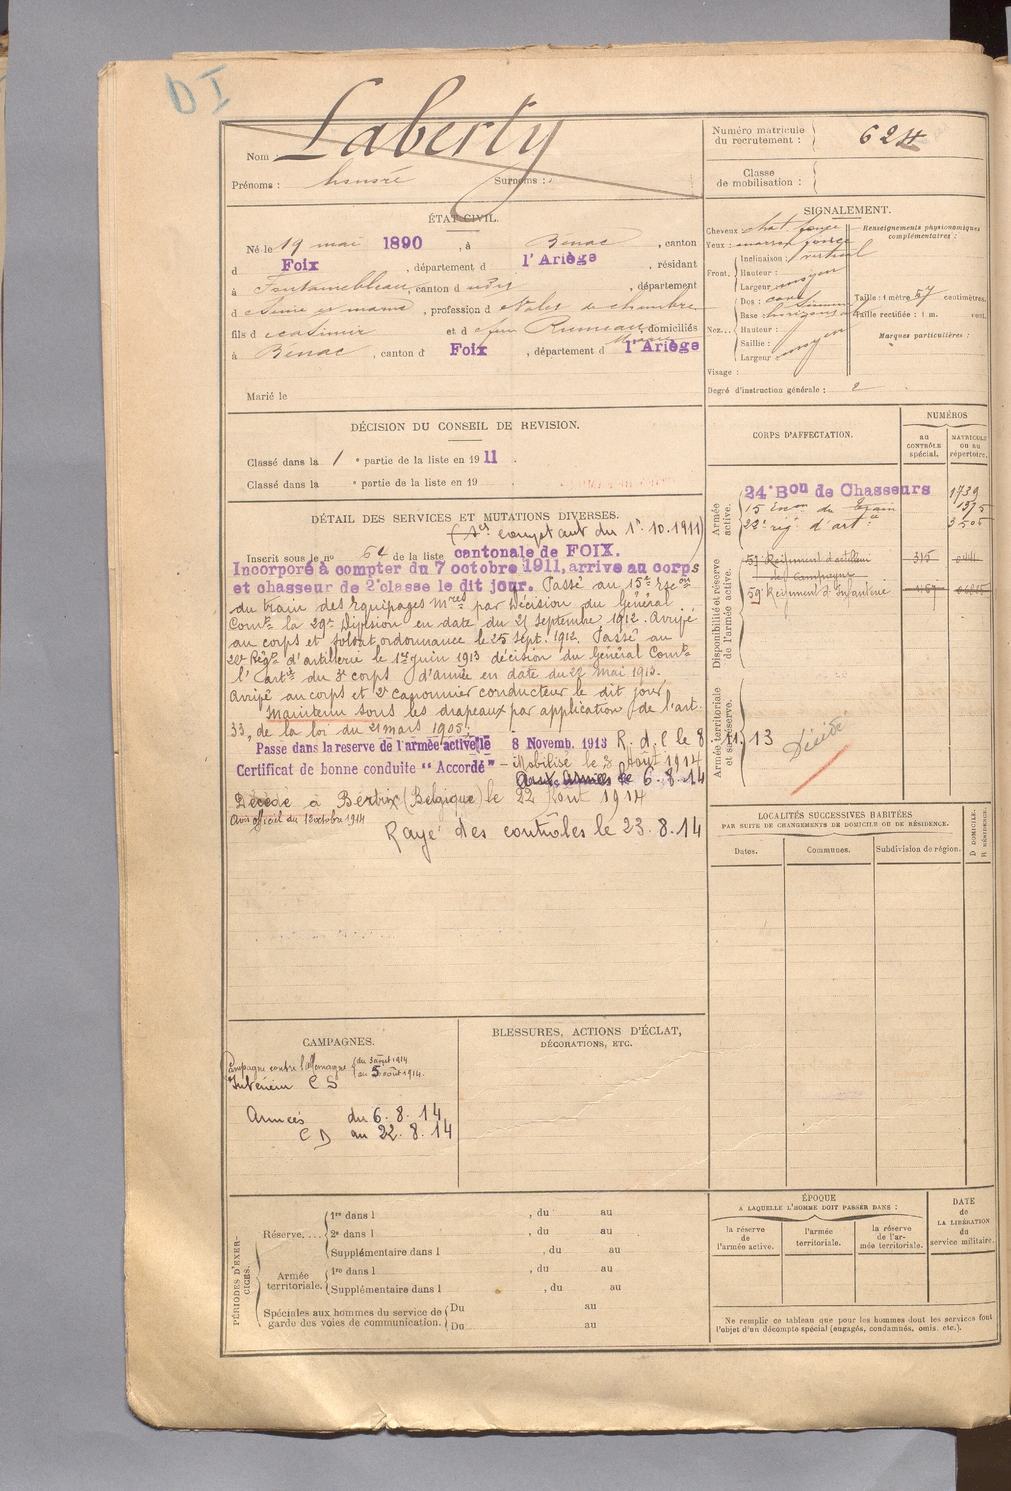 D I
Nom Laberty
Prénoms : honoré Surnoms :
Numéro matricule
du recrutement : 624
Classe
de mobilisation :
ÉTAT CIVIL.
Né le 19 mai 1890, à Bénac, canton
d Foix, département d l'Ariège, résidant
à Fontainebleau, canton d , département
d Seine et marne, profession d Valet de chambre
fils d Casimir et d Rumeau, domiciliés
à Bénac, canton d Foix, département d l'Ariège
Marié le
SIGNALEMENT.
Cheveux chat. foncé
Yeux : marron foncé
Renseignements physionomiques
complémentaires :
Front. Inclinaison : vertical
Hauteur : moyen
Largeur
Nez... Dos :
Base horizontal
Hauteur :
Saillie : moyen
Largeur
Taille : 1 mètre 57 centimètres.
Taille rectifiée : 1 m. cent.
Marques particulières :
Visage :
Degré d'instruction générale : 2
DÉCISION DU CONSEIL DE REVISION.
Classé dans la 1 e partie de la liste en 1911.
Classé dans la e partie de la liste en 19
CORPS D'AFFECTATION.
NUMÉROS
AU CONTRÔLE spécial.
MATRICULE ou au répertoire.
Armée active.
24e Bon de Chasseurs 1739
15 du train 1375
22e rég d'artie
Disponibilité et réserve de l'armée active.
51 Régiment d'artillerie 315
de Campagne
59 Régiment d'Infanterie
Armée territoriale et sa réserve.
Décédé
DÉTAIL DES SERVICES ET MUTATIONS DIVERSES.
(Ses comptant du 1er. 10. 1911)
Inscrit sous le no 64 de la liste cantonale de FOIX.
Incorporé à compter du 7 octobre 1911, arrivé au corps
et chasseur de 2e classe le dit jour. Passé au 15e Escon
du train des Equipages Mres par Décision du Général
Comt la 29e Division en date du 21 Septembre 1912. Arrivé
au corps et soldat ordonnance le 25 Sept. 1912. Passé au
22e Régt d'artillerie le 1er juin 1913 décision du Général Comt
l'artie du 3e corps d'armée en date du 22 mai 1913.
Arrivé au corps et 2e canonnier conducteur le dit jour
Maintenu sous les drapeaux par application de l'art.
33, de la loi du 21 mars 1905.
Passé dans la réserve de l'armée active le 8 Novemb. 1913 R. d. C le 8. 11. 13
Certificat de bonne conduite "Accordé" – Mobilisé le 3 Août 1914
Aux Armées le 6. 8. 14
Décédé à Bertrix (Belgique) le 22 Août 1914
Avis officiel du 13 octobre 1914
Rayé des contrôles le 23. 8. 14
LOCALITÉS SUCCESSIVES HABITÉES
PAR SUITE DE CHANGEMENTS DE DOMICILE OU DE RÉSIDENCE.
Dates. Communes. Subdivision de région. D DOMICILE. R RÉSIDENCE.
CAMPAGNES.
Campagne contre l'Allemagne du 3 août 1914
au 5 août 1914.
Intérieur C S
Armées du 6. 8. 14
C D au 22. 8. 14
BLESSURES, ACTIONS D'ÉCLAT,
DÉCORATIONS, ETC.
PÉRIODES D'EXERCICES.
Réserve..... 1re dans l , du au
2e dans l , du au
Supplémentaire dans l , du au
Armée territoriale. 1re dans l , du au
Supplémentaire dans l , du au
Spéciales aux hommes du service de
garde des voies de communication. Du au
Du au
ÉPOQUE
A LAQUELLE L'HOMME DOIT PASSER DANS :
la réserve de l'armée active.
l'armée territoriale.
la réserve de l'armée territoriale.
DATE
DE LA LIBÉRATION
du service militaire.
Ne remplir ce tableau que pour les hommes dont les services font
l'objet d'un décompte spécial (engagés, condamnés, omis, etc.).